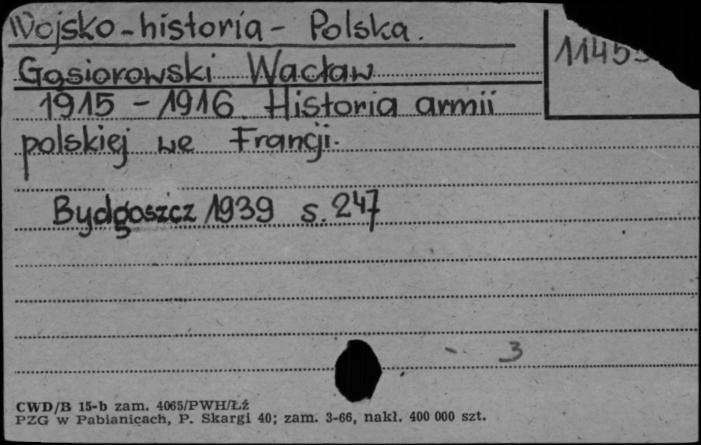 Wojsko-historia- Polska.
Gąsiorowski Wacław
1915 - 1916. Historia armii
polskiej we Francji.
Bydgoszcz 1939 s. 247
3
CWD/B 15-b zam. 4065/PWH/Łź
PZG w Pabianicach, P. Skargi 40; zam. 3-66, nakł. 400 000 szt.